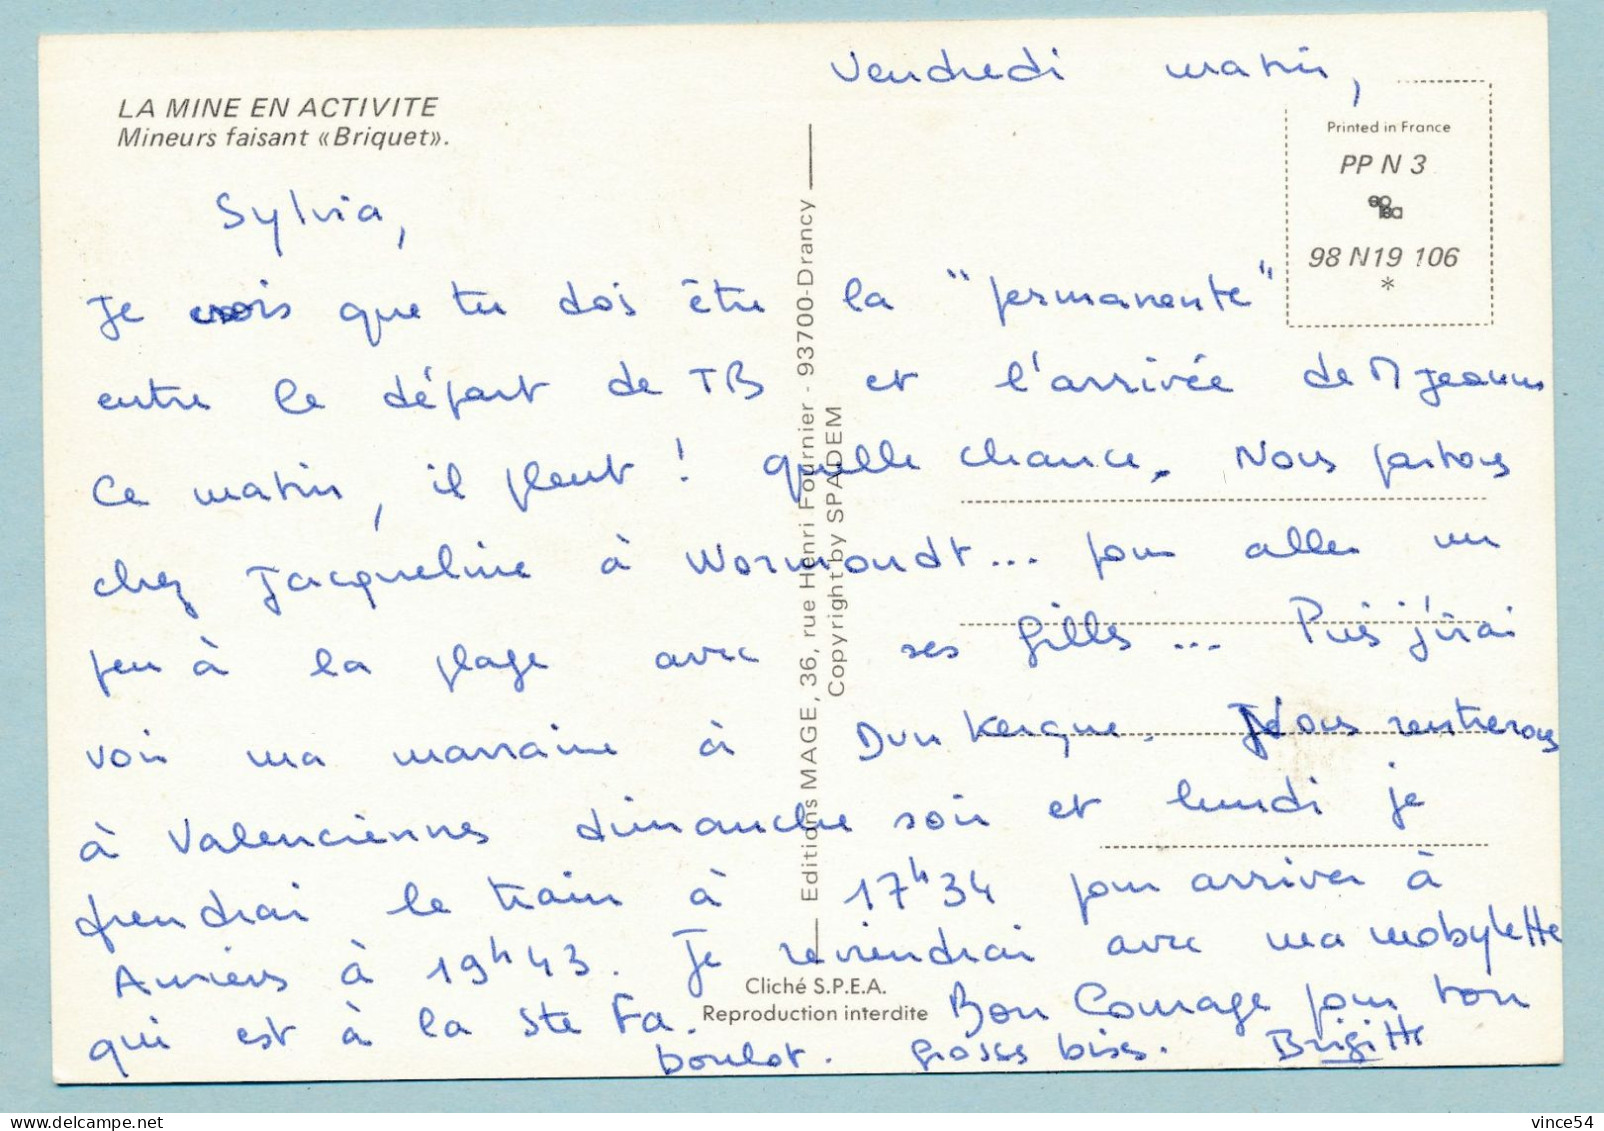 Vendredi matin,
LA MINE EN ACTIVITE
Mineurs faisant «Briquet».
Printed in France
PP N 3
98 N19 106
*
Sylvia,
Je crois que tu dois être la "permanente"
entre le départ de TB et l'arrivée de M Jeanne
Ce matin, il pleut ! quelle chance. Nous partons
chez Jacqueline à Wormoudt... pour aller un
peu à la plage avec ses filles... Puis j'irai
voir ma marraine à Dunkerque. Nous rentrerons
à Valenciennes dimanche soir et lundi je
prendrai le train à 17h34 pour arriver à
à 19h43. Je reviendrai avec ma mobylette
qui est à la Ste Fa. Bon Courage pour ton
boulot. Grosses bises. Brigitte
Editions MAGE, 36, rue Henri Fournier - 93700-Drancy
Copyright by SPADEM
Cliché S.P.E.A.
Reproduction interdite
vince54